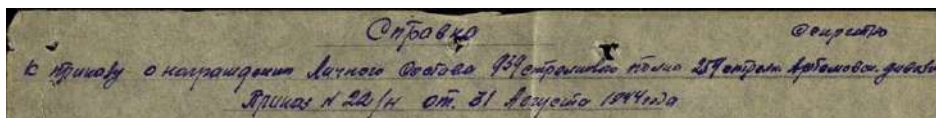 Справка
Секретно
к приказу о награждении Личного Состава 939 стрелкового полка 259 стрелк. Артемовск. дивизии
Приказ N 22/н от. 31 Августа 1944 года